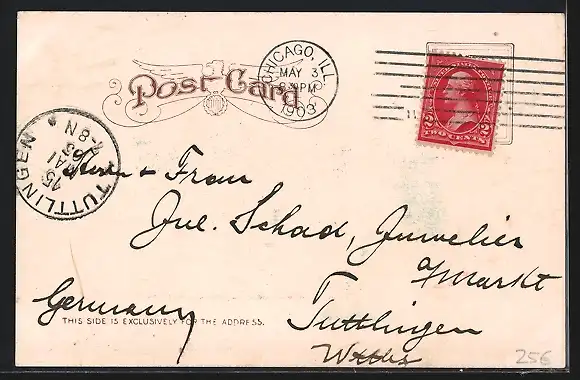 Post Card
CHICAGO, ILL.
MAY 3
8 30 PM
1903
TWO CENTS
2 2
TUTTLINGEN
15 MAI 03
7-8 N
Herrn & Frau
Jul. Schad, Juwelier
a/Markt
Germany
Tuttlingen
THIS SIDE IS EXCLUSIVELY FOR THE ADDRESS.
256